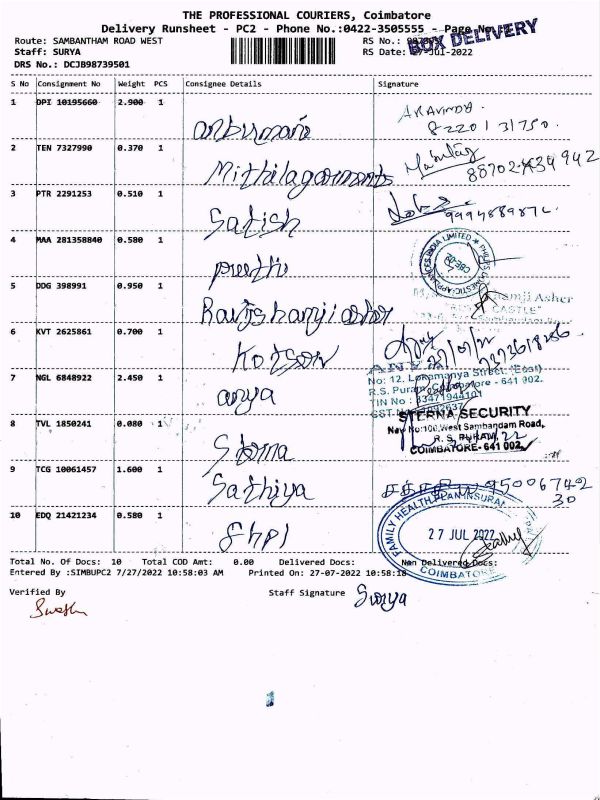 THE PROFESSIONAL COURIERS, Coimbatore
Delivery Runsheet - PC2 - Phone No.:0422-3505555 - Page No.
BOX DELIVERY
Route: SAMBANTHAM ROAD WEST
RS No.:
Staff: SURYA
RS Date: 27-JUL-2022
DRS No.: DCJB98739501
S No Consignment No Weight PCS Consignee Details Signature
1 DPI 10195660 2.900 1 anbumani ARAVINDH. 8220131750.
2 TEN 7327990 0.370 1 Mithilagarments
3 PTR 2291253 0.510 1 Satish
4 MAA 281358840 0.580 1 preethi
PHILIPS DOMESTIC APPLIANCES INDIA LIMITED
CBE-02
5 DDG 398991 0.950 1 Ravjishamji asher
amji Asher
CASTLE"
6 KVT 2625861 0.700 1 Kotson
7 NGL 6848922 2.450 1 arya
No: 12, Lokamanya Street, (East)
R.S. Puram, Coimbatore - 641 002.
TIN No : 33471944101
CST No
8 TVL 1850241 0.080 1 Sterna
STERNA SECURITY
New No:100,West Sambandam Road,
R. S. PURAM,
COIMBATORE- 641 002.
9 TCG 10061457 1.600 1 Sathiya சத்தியா 9500674230
10 EDQ 21421234 0.580 1 fhpl
FAMILY HEALTH PLAN INSURAN
27 JUL 2022
COIMBATORE
Total No. Of Docs: 10 Total COD Amt: 0.00 Delivered Docs: Non Delivered Docs:
Entered By :SIMBUPC2 7/27/2022 10:58:03 AM Printed On: 27-07-2022 10:58:18
Verified By Staff Signature Surya